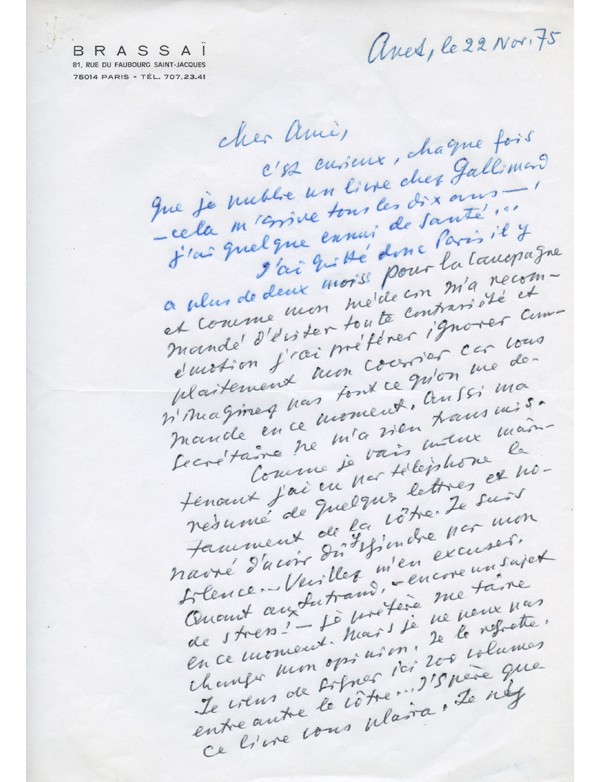 BRASSAÏ
81, RUE DU FAUBOURG SAINT-JACQUES
75014 PARIS - TÉL. 707.23.41
Anet, le 22 Nov. 75
Cher Ami,
C'est curieux, chaque fois
que je publie un livre chez Gallimard
- cela m'arrive tous les dix ans - ,
j'ai quelque ennui de santé...
J'ai quitté donc Paris il y
a plus de deux moiss pour la campagne
et comme mon médecin m'a recom-
mandé d'éviter toute contrariété et
émotion j'ai préférer ignorer com-
plaitement mon courrier car vous
n'imaginez pas tout ce qu'on me de-
mande en ce moment. Aussi ma
secrétaire ne m'a rien transmis.
Comme je vais mieux main-
tenant j'ai eu par téléphone le
résumé de quelques lettres et no-
tamment de la vôtre. Je suis
navré d'avoir dû par mon
silence... Veuillez m'en excuser.
Quant aux - encore un sujet
de stress! - je préfère me taire
en ce moment. Mais je ne peux pas
changer mon opinion. Je le regrette.
Je viens de signer ici 200 volumes
entre autre le vôtre... J'espère que
ce livre vous plaira. Je